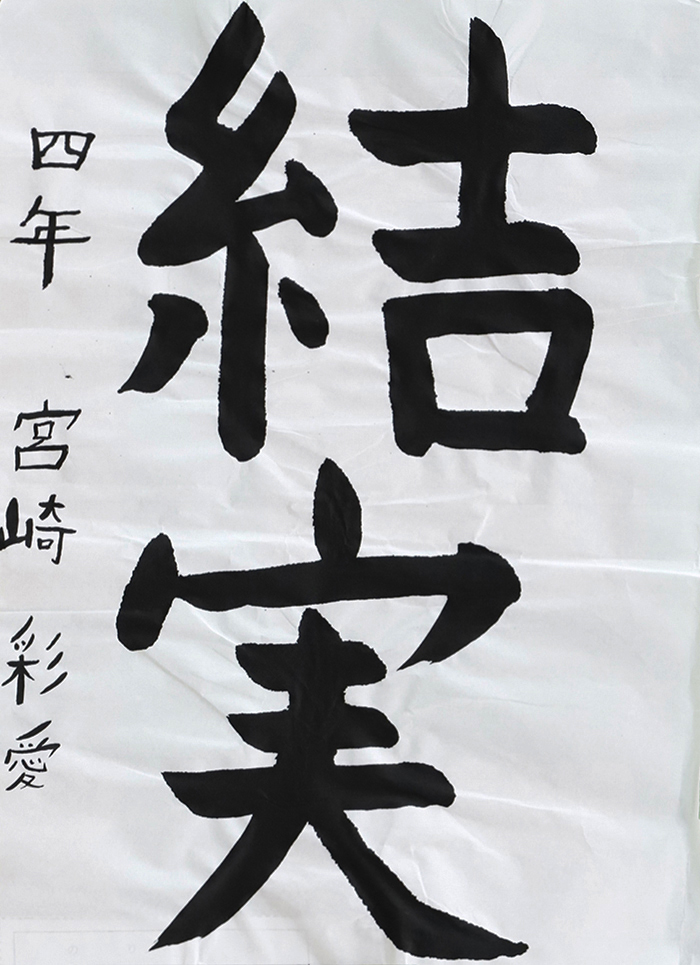 結実
四年 宮崎 彩愛